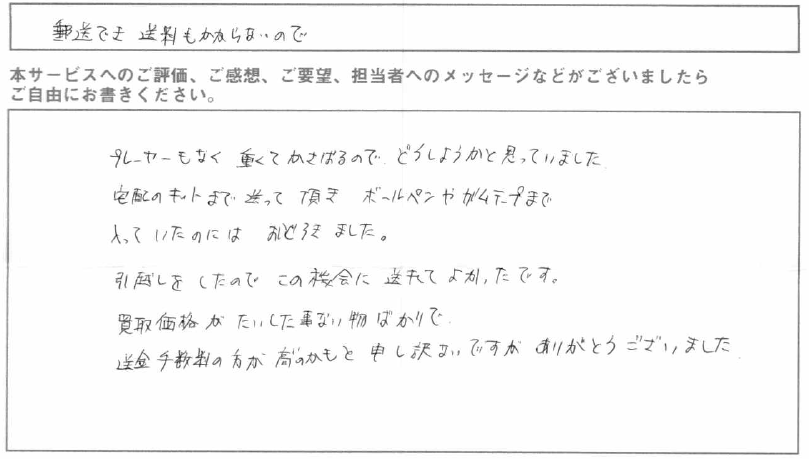 郵送でき 送料もかからないので
本サービスへのご評価、ご感想、ご要望、担当者へのメッセージなどがございましたら
ご自由にお書きください。
プレーヤーもなく 重くてかさばるので どうしようかと思っていました
宅配のキットまで送って頂き ボールペンやガムテープまで
入っていたのには おどろきました。
引越しをしたので この機会に 送れてよかったです。
買取価格が たいした事ない物ばかりで
送金手数料の方が 高いのかもと 申し訳ないですが ありがとうございました